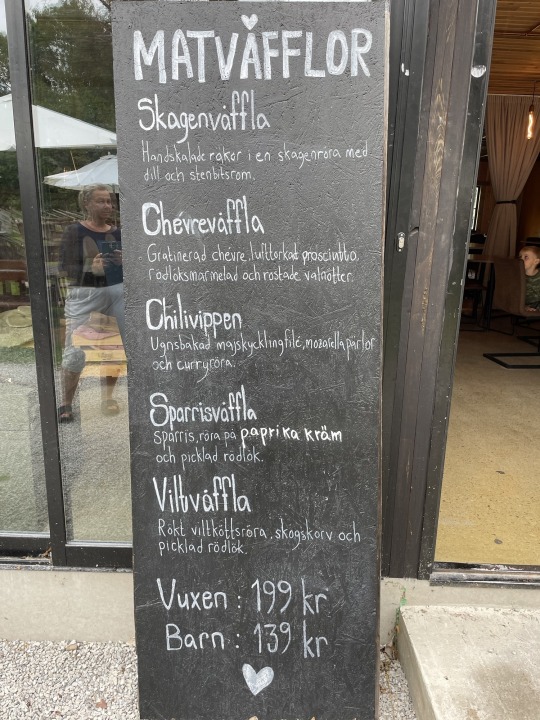 MATVÅFFLOR
Skagenvåffla
Handskalade räkor i en skagenröra med
dill och stenbitsrom.
Chévrevåffla
Gratinerad chévre, lufttorkad prosciutto,
rödlöksmarmelad och rostade valnötter.
Chilivippen
Ugnsbakad majskycklingfilé, mozarellapärlor
och curryröra.
Sparrisvåffla
Sparris, röra på paprika kräm
och picklad rödlök.
Viltvåffla
Rökt viltköttsröra, skogskorv och
picklad rödlök.
Vuxen : 199 kr
Barn : 139 kr